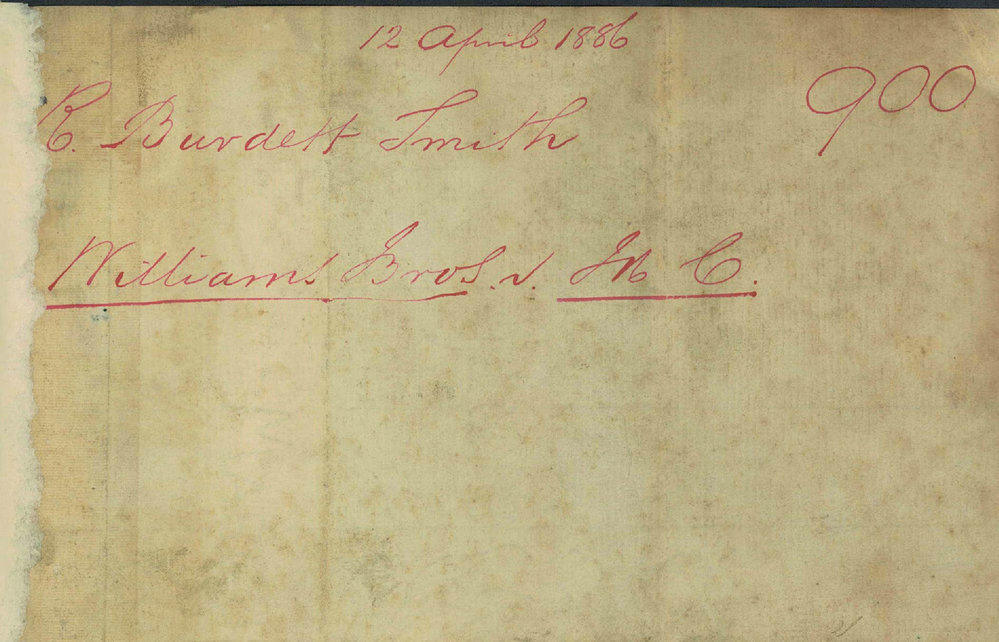 12 April 1886
900
R. Burdett Smith
Williams Bros. v. M C.